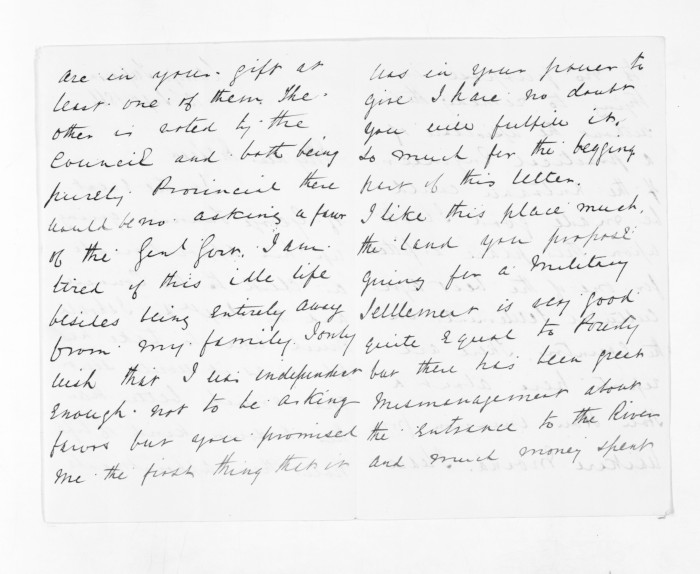 are in your gift at
least one of them. The
other is voted by the
Council and both being
purely Provincial there
would be no asking a favor
of the Genl Govr. I am
tired of this idle life
besides being entirely away
from my family. I only
wish that I was independent
enough not to be asking
favors but you promised
me the first thing that it
was in your power to
give I have no doubt
you will fulfill it.
So much for the begging
part of this letter.
I like this place much,
the land you propose
giving for a Military
Settlement is very good
quite equal to
but there has been great
Mismanagement about
the entrance to the River
and much money spent